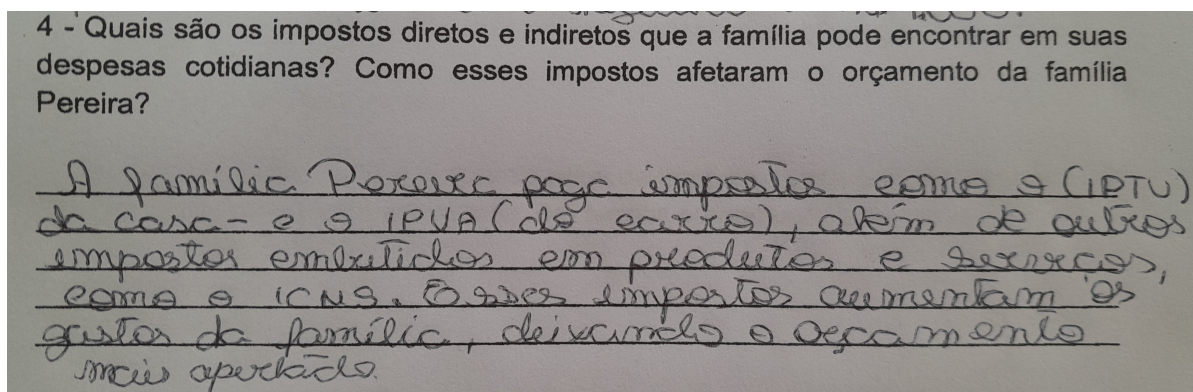 4 - Quais são os impostos diretos e indiretos que a família pode encontrar em suas
despesas cotidianas? Como esses impostos afetaram o orçamento da família
Pereira?
A família Pereira paga impostos como o (IPTU)
da casa - e o IPVA (do carro), além de outros
impostos embutidos em produtos e serviços,
como o ICMS. Esses impostos aumentam os
gastos da família, deixando o orçamento
mais apertado.